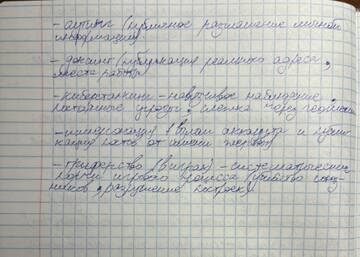 - аутинг (публичное разглашение личной
информации)
- доксинг (публикация реального адреса,
места работы)
- киберсталкинг - навязчивое наблюдение,
постоянные угрозы, слежка через геолока
- имперсонация (взлом аккаунта и публи-
кация постов от имени жертвы)
- гриферство (в играх) - систематическая
порча игрового процесса (убийство союз-
ников, разрушение построек)